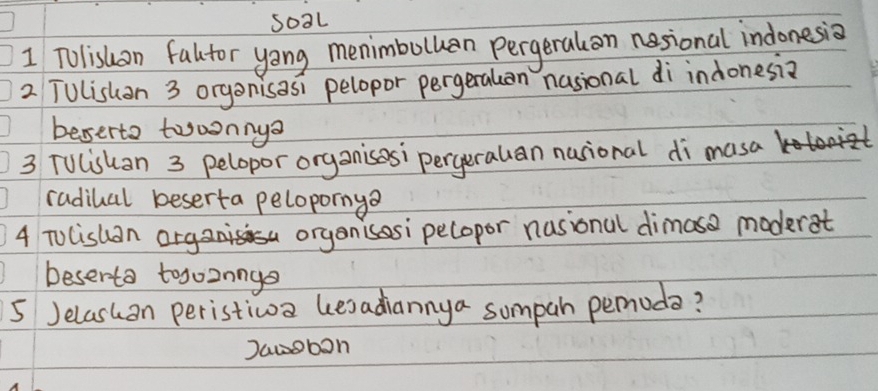 Soal
1 Tuliskan faktor yang menimbulkan pergerakan nasional indonesia
2 Tuliskan 3 organisasi pelopor pergerakan nasional di indonesia
beserta tujuannya
3 Tuliskan 3 pelopor organisasi pergerakan nasional di masa kolonial
radikal beserta pelopornya
4 Tuliskan organisisu organisasi pelopor nasional dimasa moderat
beserta tujuannya
5 Jelaskan peristiwa kejadiannya sumpah pemuda?
Jawaban